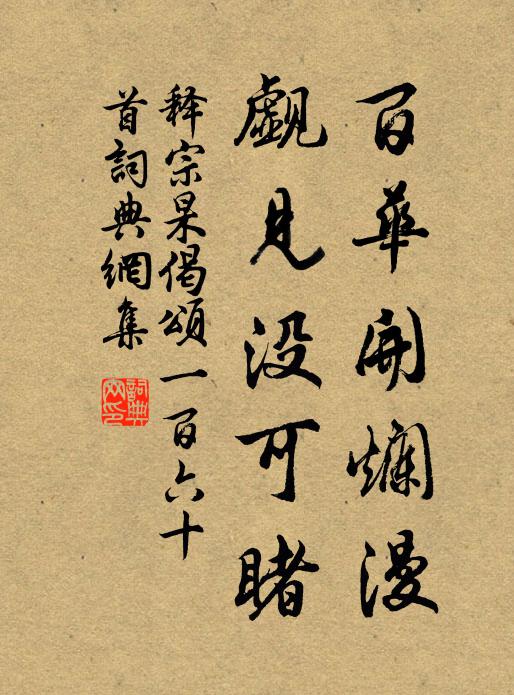 百華開爛漫
覷見沒可睹
释宗杲偈頌一百六十
首詞典網集
詞典
网印